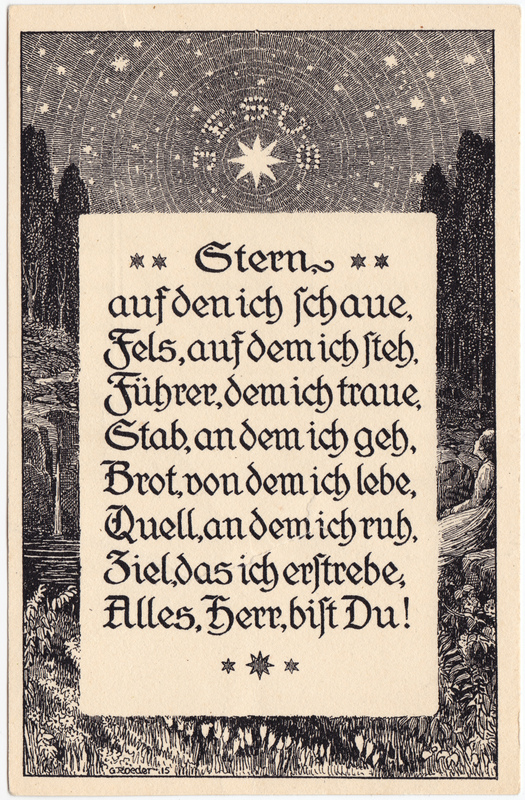 JESUS
Stern,
auf den ich schaue,
Fels, auf dem ich steh,
Führer, dem ich traue,
Stab, an dem ich geh,
Brot, von dem ich lebe,
Quell, an dem ich ruh,
Ziel, das ich erstrebe,
Alles, Herr, bist Du!
G. Roeder 15